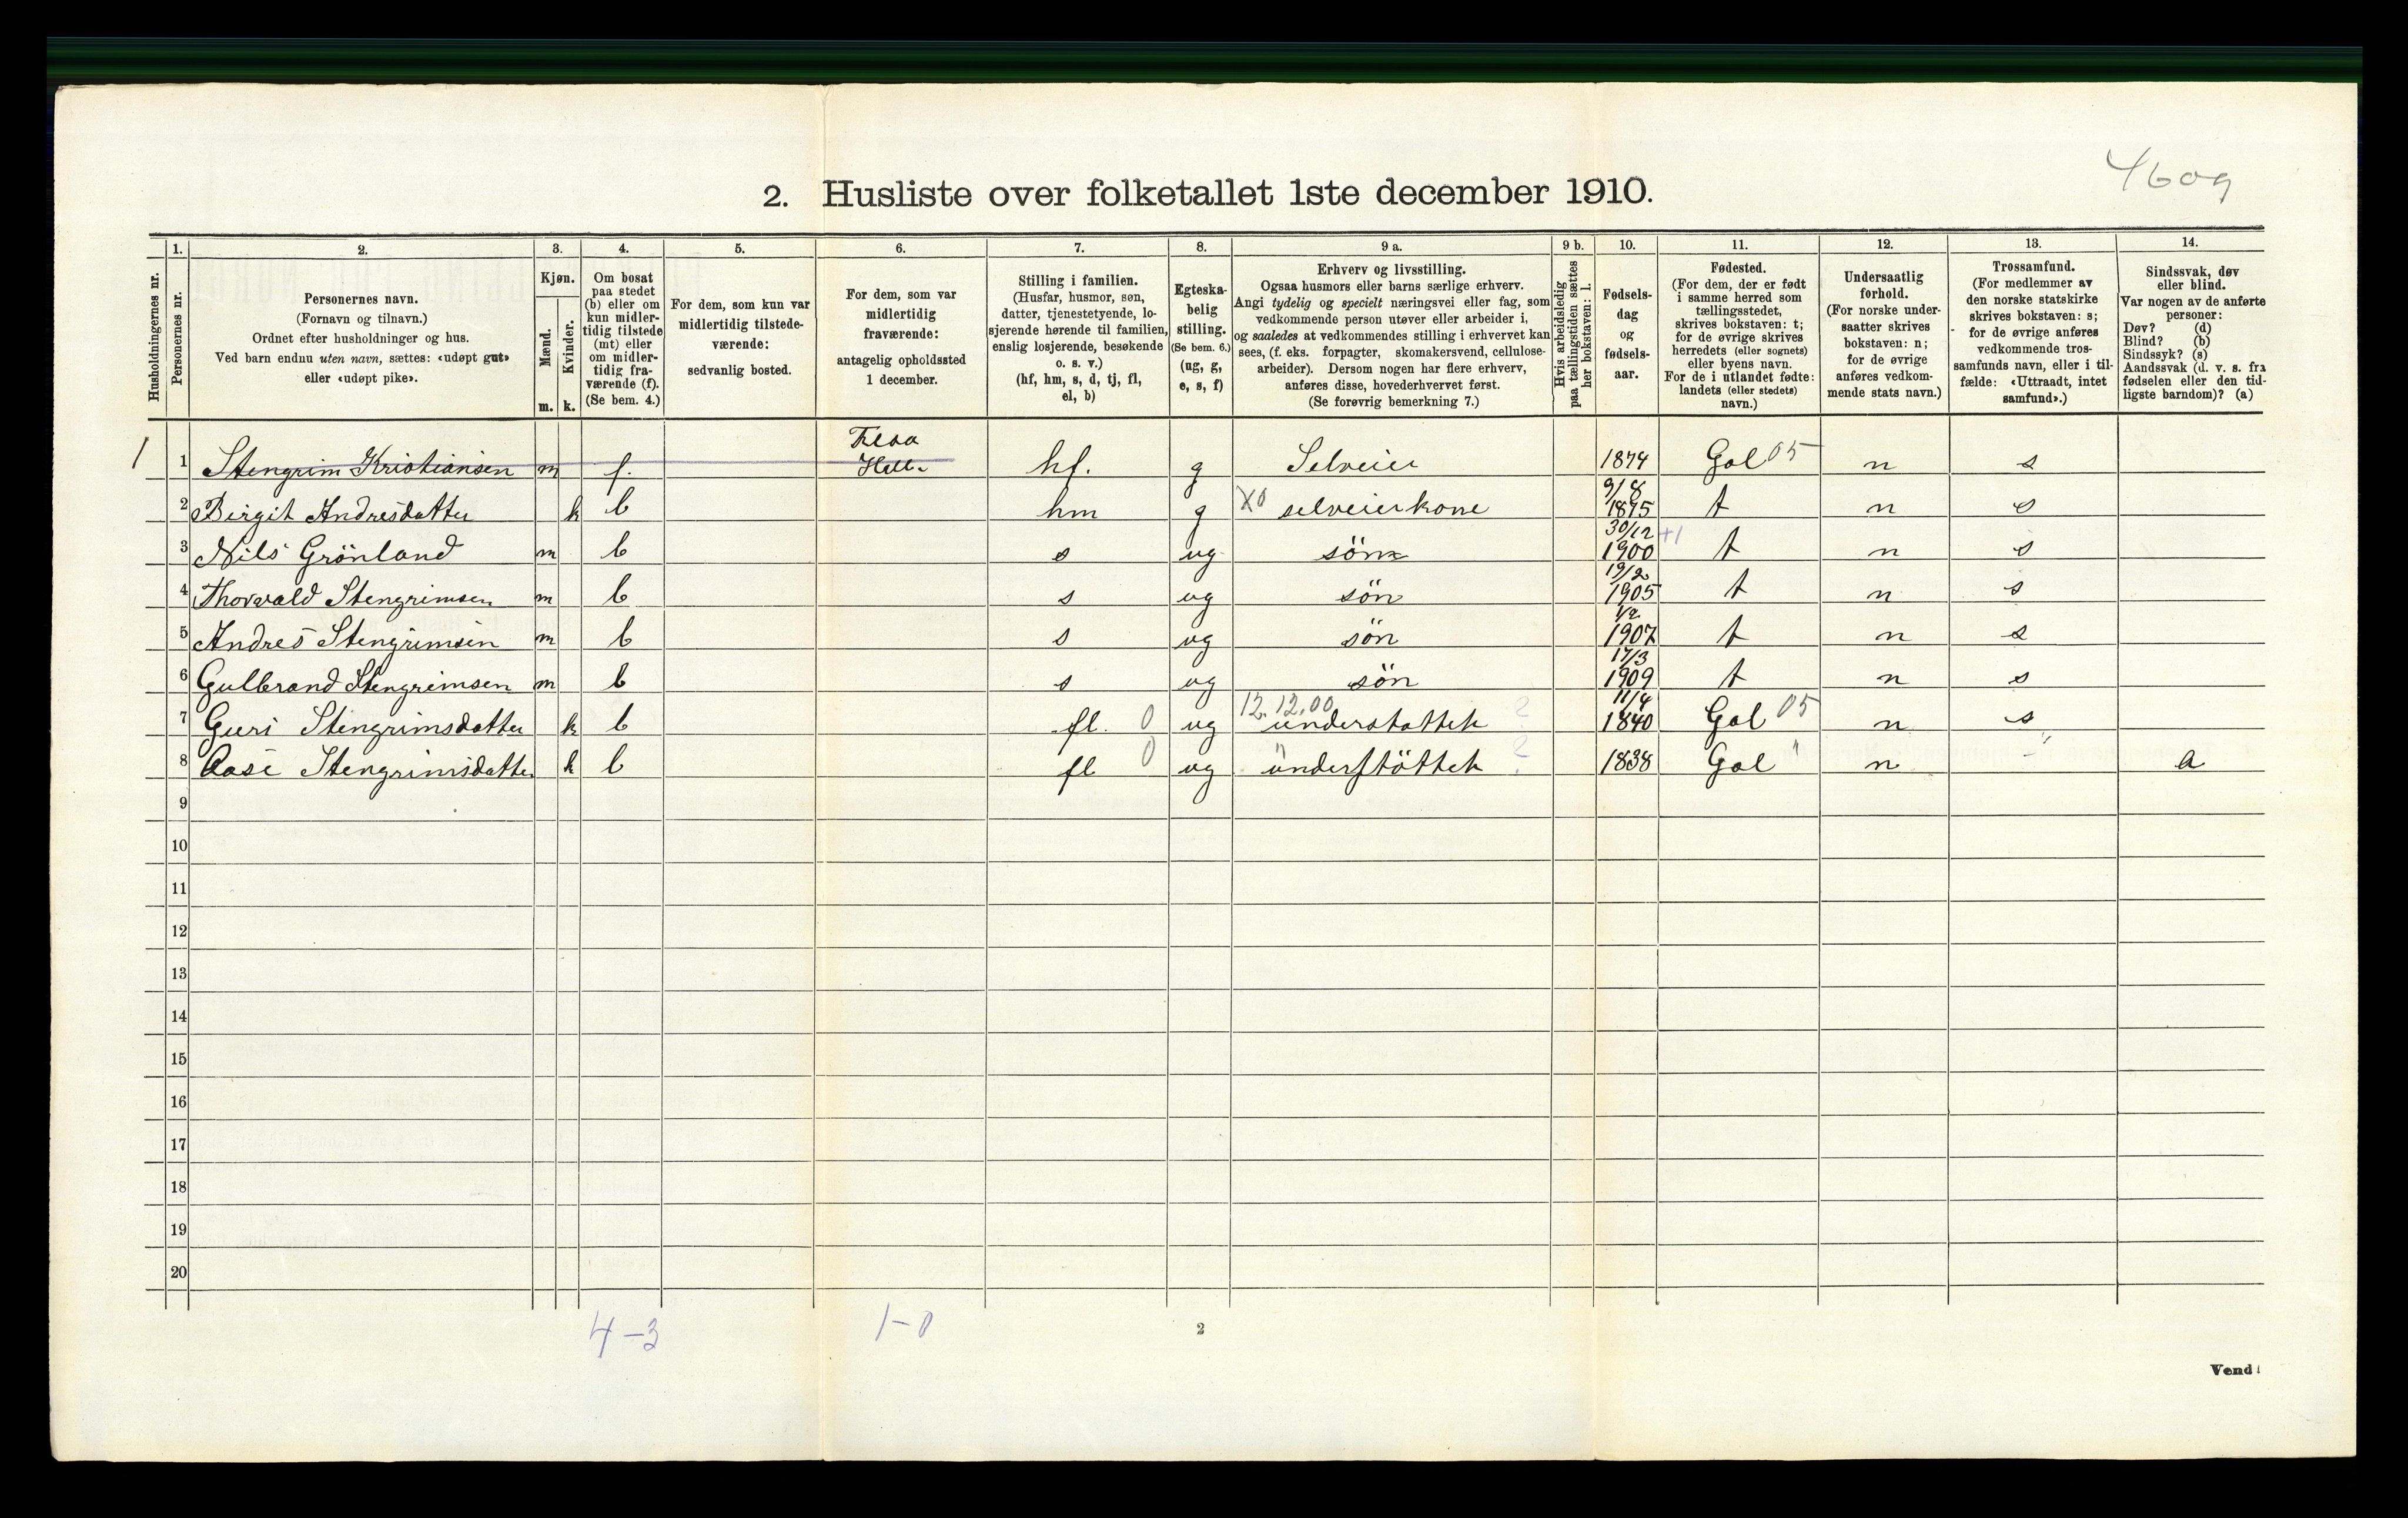 4609
2. Husliste over folketallet 1ste december 1910.
Husholdningernes nr.
1.
Personernes nr.
2.
Personernes navn.
(Fornavn og tilnavn.)
Ordnet efter husholdninger og hus.
Ved barn endnu uten navn, sættes: «udøpt gut»
eller «udøpt pike».
3.
Kjøn.
Mænd.
Kvinder.
m. k.
4.
Om bosat
paa stedet
(b) eller om
kun midler-
tidig tilstede
(mt) eller
om midler-
tidig fra-
værende (f).
(Se bem. 4.)
5.
For dem, som kun var
midlertidig tilstede-
værende:
sedvanlig bosted.
6.
For dem, som var
midlertidig
fraværende:
antagelig opholdssted
1 december.
7.
Stilling i familien.
(Husfar, husmor, søn,
datter, tjenestetyende, lo-
sjerende hørende til familien,
enslig losjerende, besøkende
o. s. v.)
(hf, hm, s, d, tj, fl,
el, b)
8.
Egteska-
belig
stilling.
(Se bem. 6.)
(ug, g,
e, s, f)
9 a.
Erhverv og livsstilling.
Ogsaa husmors eller barns særlige erhverv.
Angi tydelig og specielt næringsvei eller fag, som
vedkommende person utøver eller arbeider i,
og saaledes at vedkommendes stilling i erhvervet kan
sees, (f. eks. forpagter, skomakersvend, cellulose-
arbeider). Dersom nogen har flere erhverv,
anføres disse, hovederhvervet først.
(Se forøvrig bemerkning 7.)
9 b.
Hvis arbeidsledig
paa tællingstiden sættes
her bokstaven: l.
10.
Fødsels-
dag
og
fødsels-
aar.
11.
Fødested.
(For dem, der er født
i samme herred som
tællingsstedet,
skrives bokstaven: t;
for de øvrige skrives
herredets (eller sognets)
eller byens navn.
For de i utlandet fødte:
landets (eller stedets)
navn.)
12.
Undersaatlig
forhold.
(For norske under-
saatter skrives
bokstaven: n;
for de øvrige
anføres vedkom-
mende stats navn.)
13.
Trossamfund.
(For medlemmer av
den norske statskirke
skrives bokstaven: s;
for de øvrige anføres
vedkommende tros-
samfunds navn, eller i til-
fælde: «Uttraadt, intet
samfund».)
14.
Sindssvak, døv
eller blind.
Var nogen av de anførte
personer:
Døv? (d)
Blind? (b)
Sindssyk? (s)
Aandssvak (d. v. s. fra
fødselen eller den tid-
ligste barndom)? (a)
1 1 Stengrim Kristiansen m f. Flaa hf. g Selveier 1874 Gol 05 n s
2 Birgit Andresdatter k b hm g X0 selveierkone 9/8 1875 t n s
3 Nils Grönland m b s ug sön 30/12 1900 +1 t n s
4 Thorvald Stengrimsen m b s ug sön 19/2 1905 t n s
5 Andres Stengrimsen m b s ug sön 1/2 1907 t n s
6 Gulbrand Stengrimsen m b s ug sön 17/3 1909 t n s
7 Guri Stengrimsdatter k b fl. 0 ug 12.12.00 understøttet ? 11/4 1840 Gol 05 n s
8 Aase Stengrimsdatter k b fl 0 ug understøttet ? 1838 Gol " n " a
9
10
11
12
13
14
15
16
17
18
19
20
4-3
1-0
2
Vend!